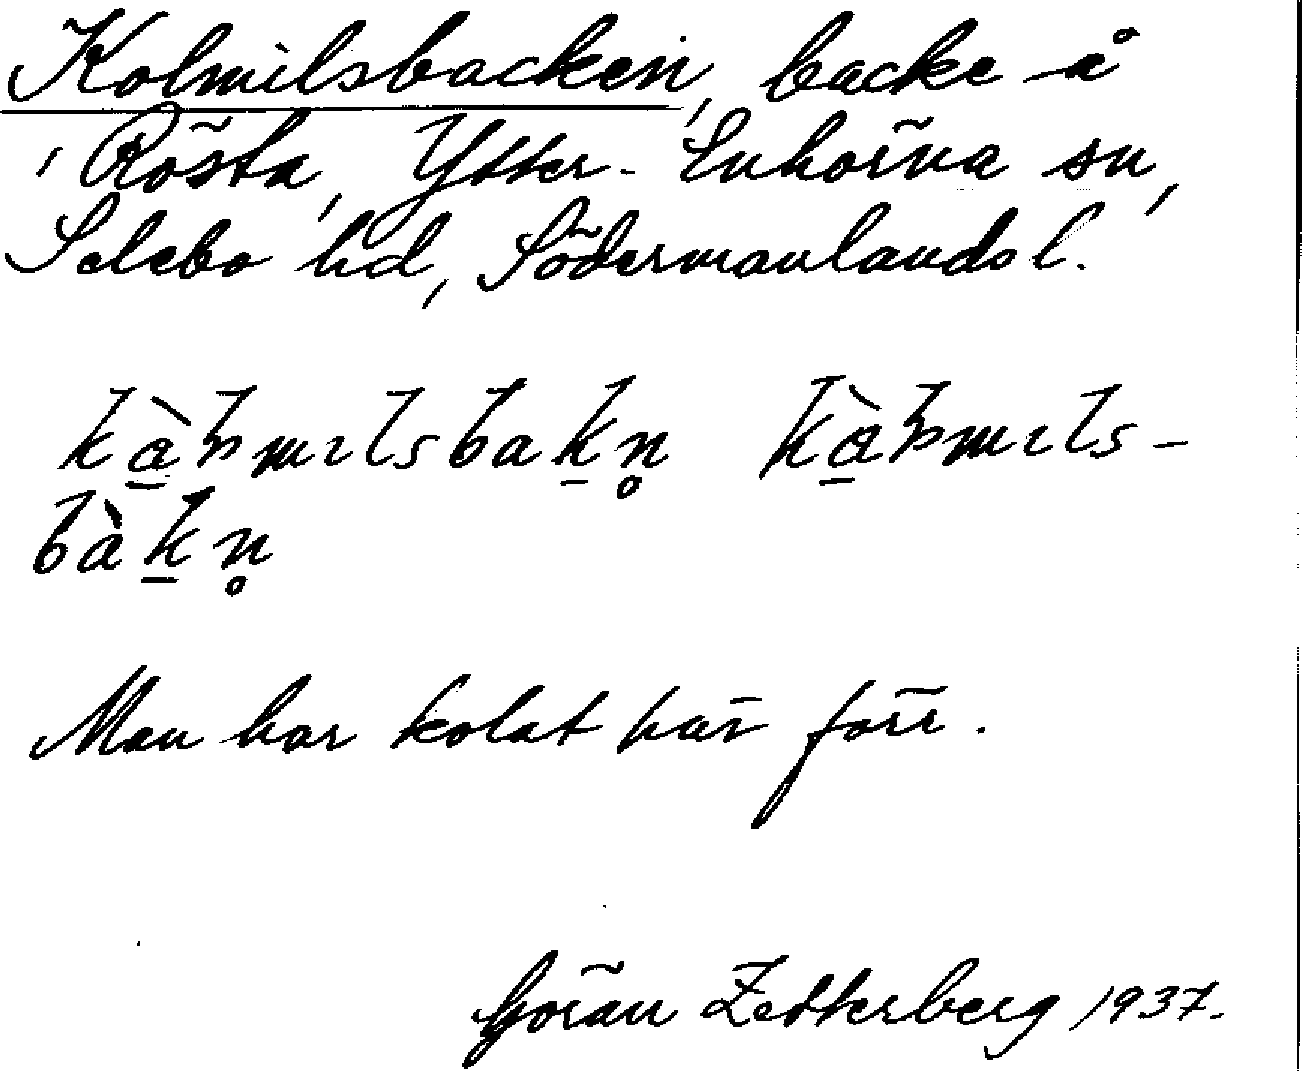 Kolmilsbacken, backe å
, Rösta, Ytter-Enhörna sn,
Selebo hd, Södermanlands l.
Man har kolat här förr.
Göran Zetterberg 1937.